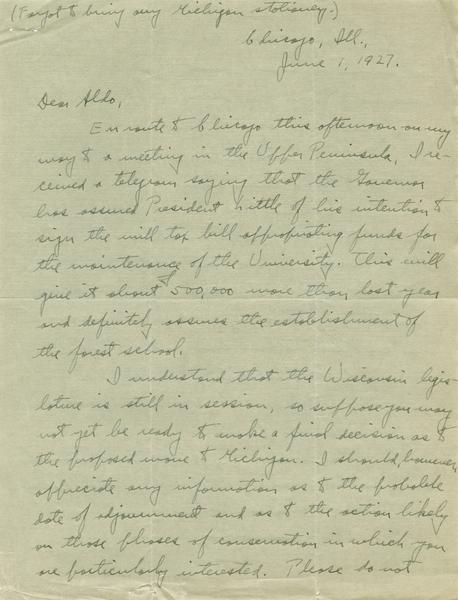 (Forgot to bring any Michigan stationery.)
Chicago, Ill.,
June 1, 1927.
Dear Aldo,
En route to Chicago this afternoon on my
way to a meeting in the Upper Peninsula, I re-
ceived a telegram saying that the Governor
has assured President Little of his intention to
sign the mill tax bill appropriating funds for
the maintenance of the University. This will
give it about $500,000 more than last year
and definitely assures the establishment of
the forest school.
I understand that the Wisconsin legis-
lature is still in session, so suppose you may
not yet be ready to make a final decision as to
the proposed move to Michigan. I should, however,
appreciate any information as to the probable
date of adjournment and as to the action likely
on those phases of conservation in which you
are particularly interested. Please do not